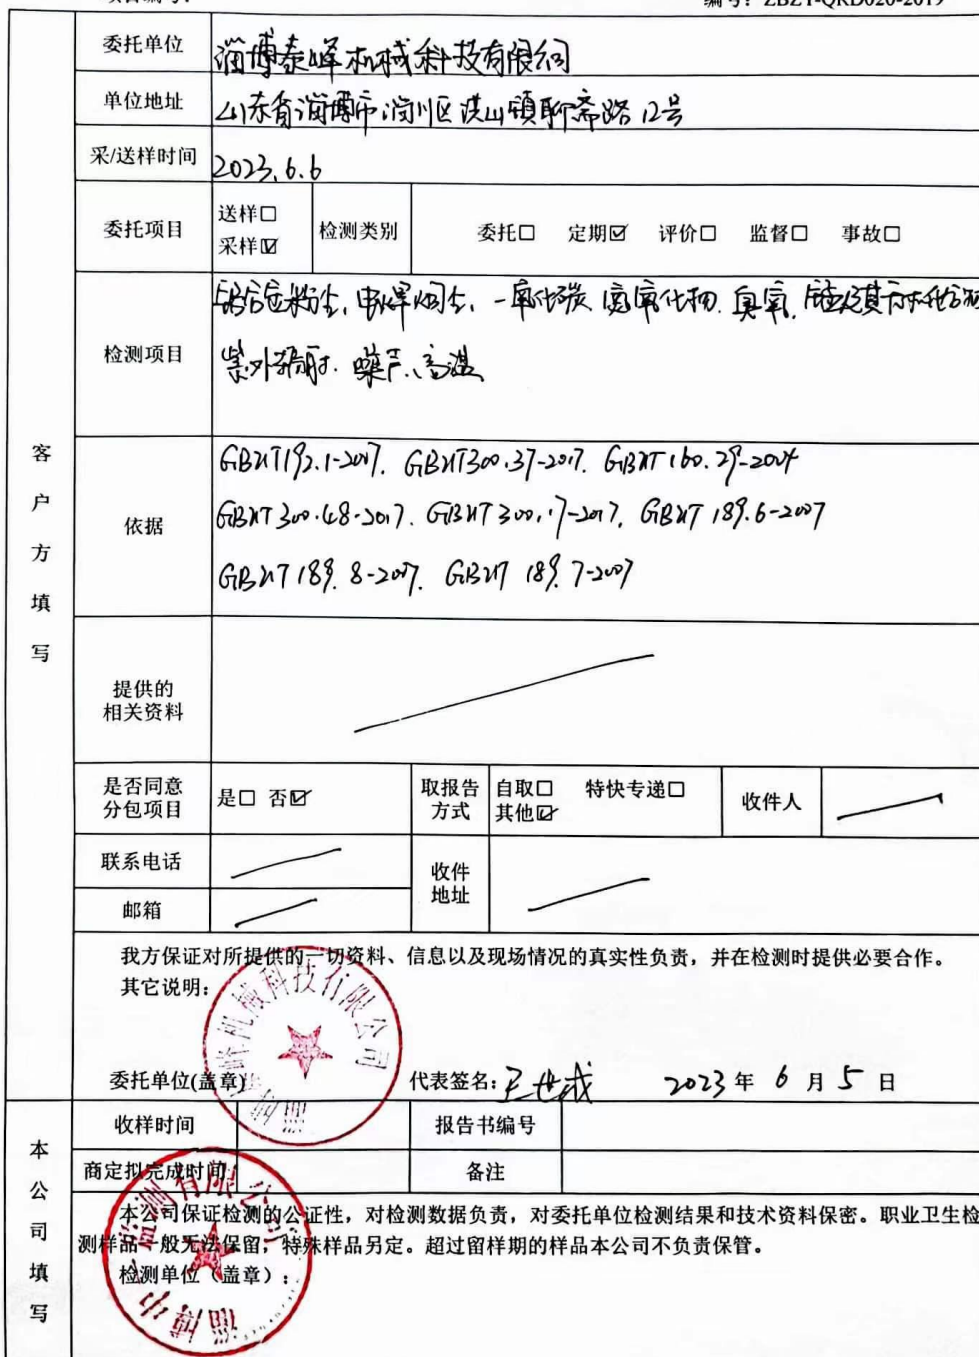 编号：ZBZY-QRD020-2019
委托单位 淄博泰峰机械科技有限公司
单位地址 山东省淄博市淄川区洪山镇聊斋路12号
采/送样时间 2023.6.6
委托项目 送样□ 采样☑ 检测类别 委托□ 定期☑ 评价□ 监督□ 事故□
检测项目 粉尘、电焊烟尘、一氧化碳、氮氧化物、臭氧、锰及其
紫外辐射、噪声、高温
客户方填写
依据 GBZ/T192.1-2007. GBZ/T300.37-2017. GBZ/T160.29-2004
GBZ/T300.48-2017. GBZ/T300.17-2017. GBZ/T189.6-2007
GBZ/T189.8-2007. GBZ/T189.7-2007
提供的
相关资料
是否同意
分包项目 是□ 否☑ 取报告
方式 自取□ 特快专递□
其他☑ 收件人
联系电话 收件
地址
邮箱
我方保证对所提供的一切资料、信息以及现场情况的真实性负责，并在检测时提供必要合作。
其它说明：
峰机械科技有限公司
委托单位(盖章) 代表签名：王世成 2023年6月5日
收样时间 报告书编号
本公司填写
商定拟完成时间 备注
本公司保证检测的公证性，对检测数据负责，对委托单位检测结果和技术资料保密。职业卫生检
测样品一般无法保留，特殊样品另定。超过留样期的样品本公司不负责保管。
检测单位（盖章）：